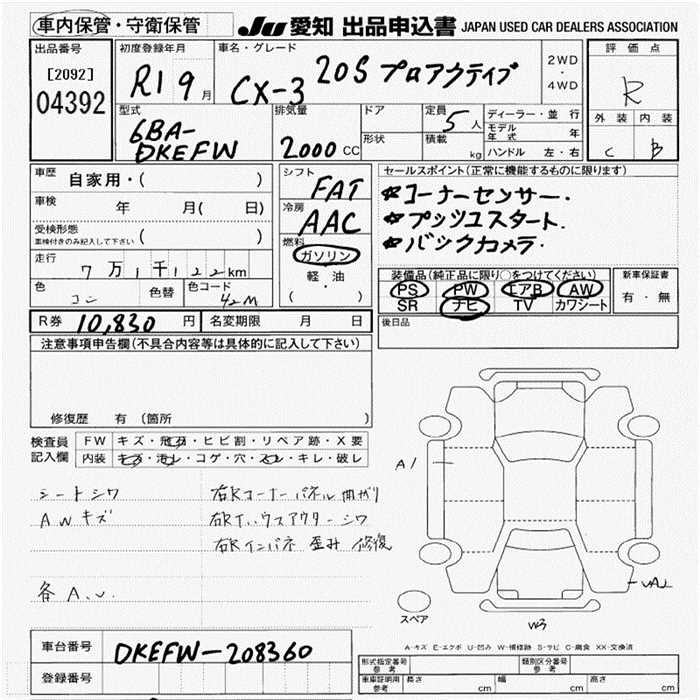 車内保管・守衛保管
JU 愛知 出品申込書 JAPAN USED CAR DEALERS ASSOCIATION
出品番号
[2092]
04392
初度登録年月
R1 9月
車名・グレード
CX-3 20S プロアクティブ
2WD
・
4WD
評価点
R
外装 内装
C B
型式
6BA-
DKEFW
排気量
2000 CC
ドア
形状
定員
5人
積載
kg
ディーラー・並行
モデル年式 年
ハンドル 左・右
車歴 自家用・( )
車検 年 月( 日)
受検形態
車検付きのみ記入して下さい ( )
走行
7万1千122km
色 コン 色替 色コード 42M
シフト
FAT
冷房
AAC
燃料
ガソリン
軽・油
( )
セールスポイント(正常に機能するものに限ります)
*コーナーセンサー.
*プッシュスタート.
*バックカメラ.
装備品(純正品に限り○をつけてください)
PS PW エアB AW
SR ナビ TV カワシート
新車保証書
有・無
後日品
R券 10,830 円 名変期限 月 日
注意事項申告欄(不具合内容等は具体的に記入して下さい)
修復歴 有 (箇所 )
検査員
記入欄
FW キズ・飛石・ヒビ割・リペア跡・X要
内装 キズ・汚レ・コゲ・穴・スレ・キレ・破レ
シートシワ
AWキズ
各A.U.
右Rコーナーパネル曲がり
右Rインパネ 歪み 修復
A1
W3
スペア
A-キズ E-エクボ U-凹み W-補修跡 S-サビ C-腐食 XX-交換済
車台番号 DKEFW-208360
登録番号
形式指定番号
参考
類別区分番号
参考
車庫証明用
参考
長さ cm 幅 cm 高さ cm